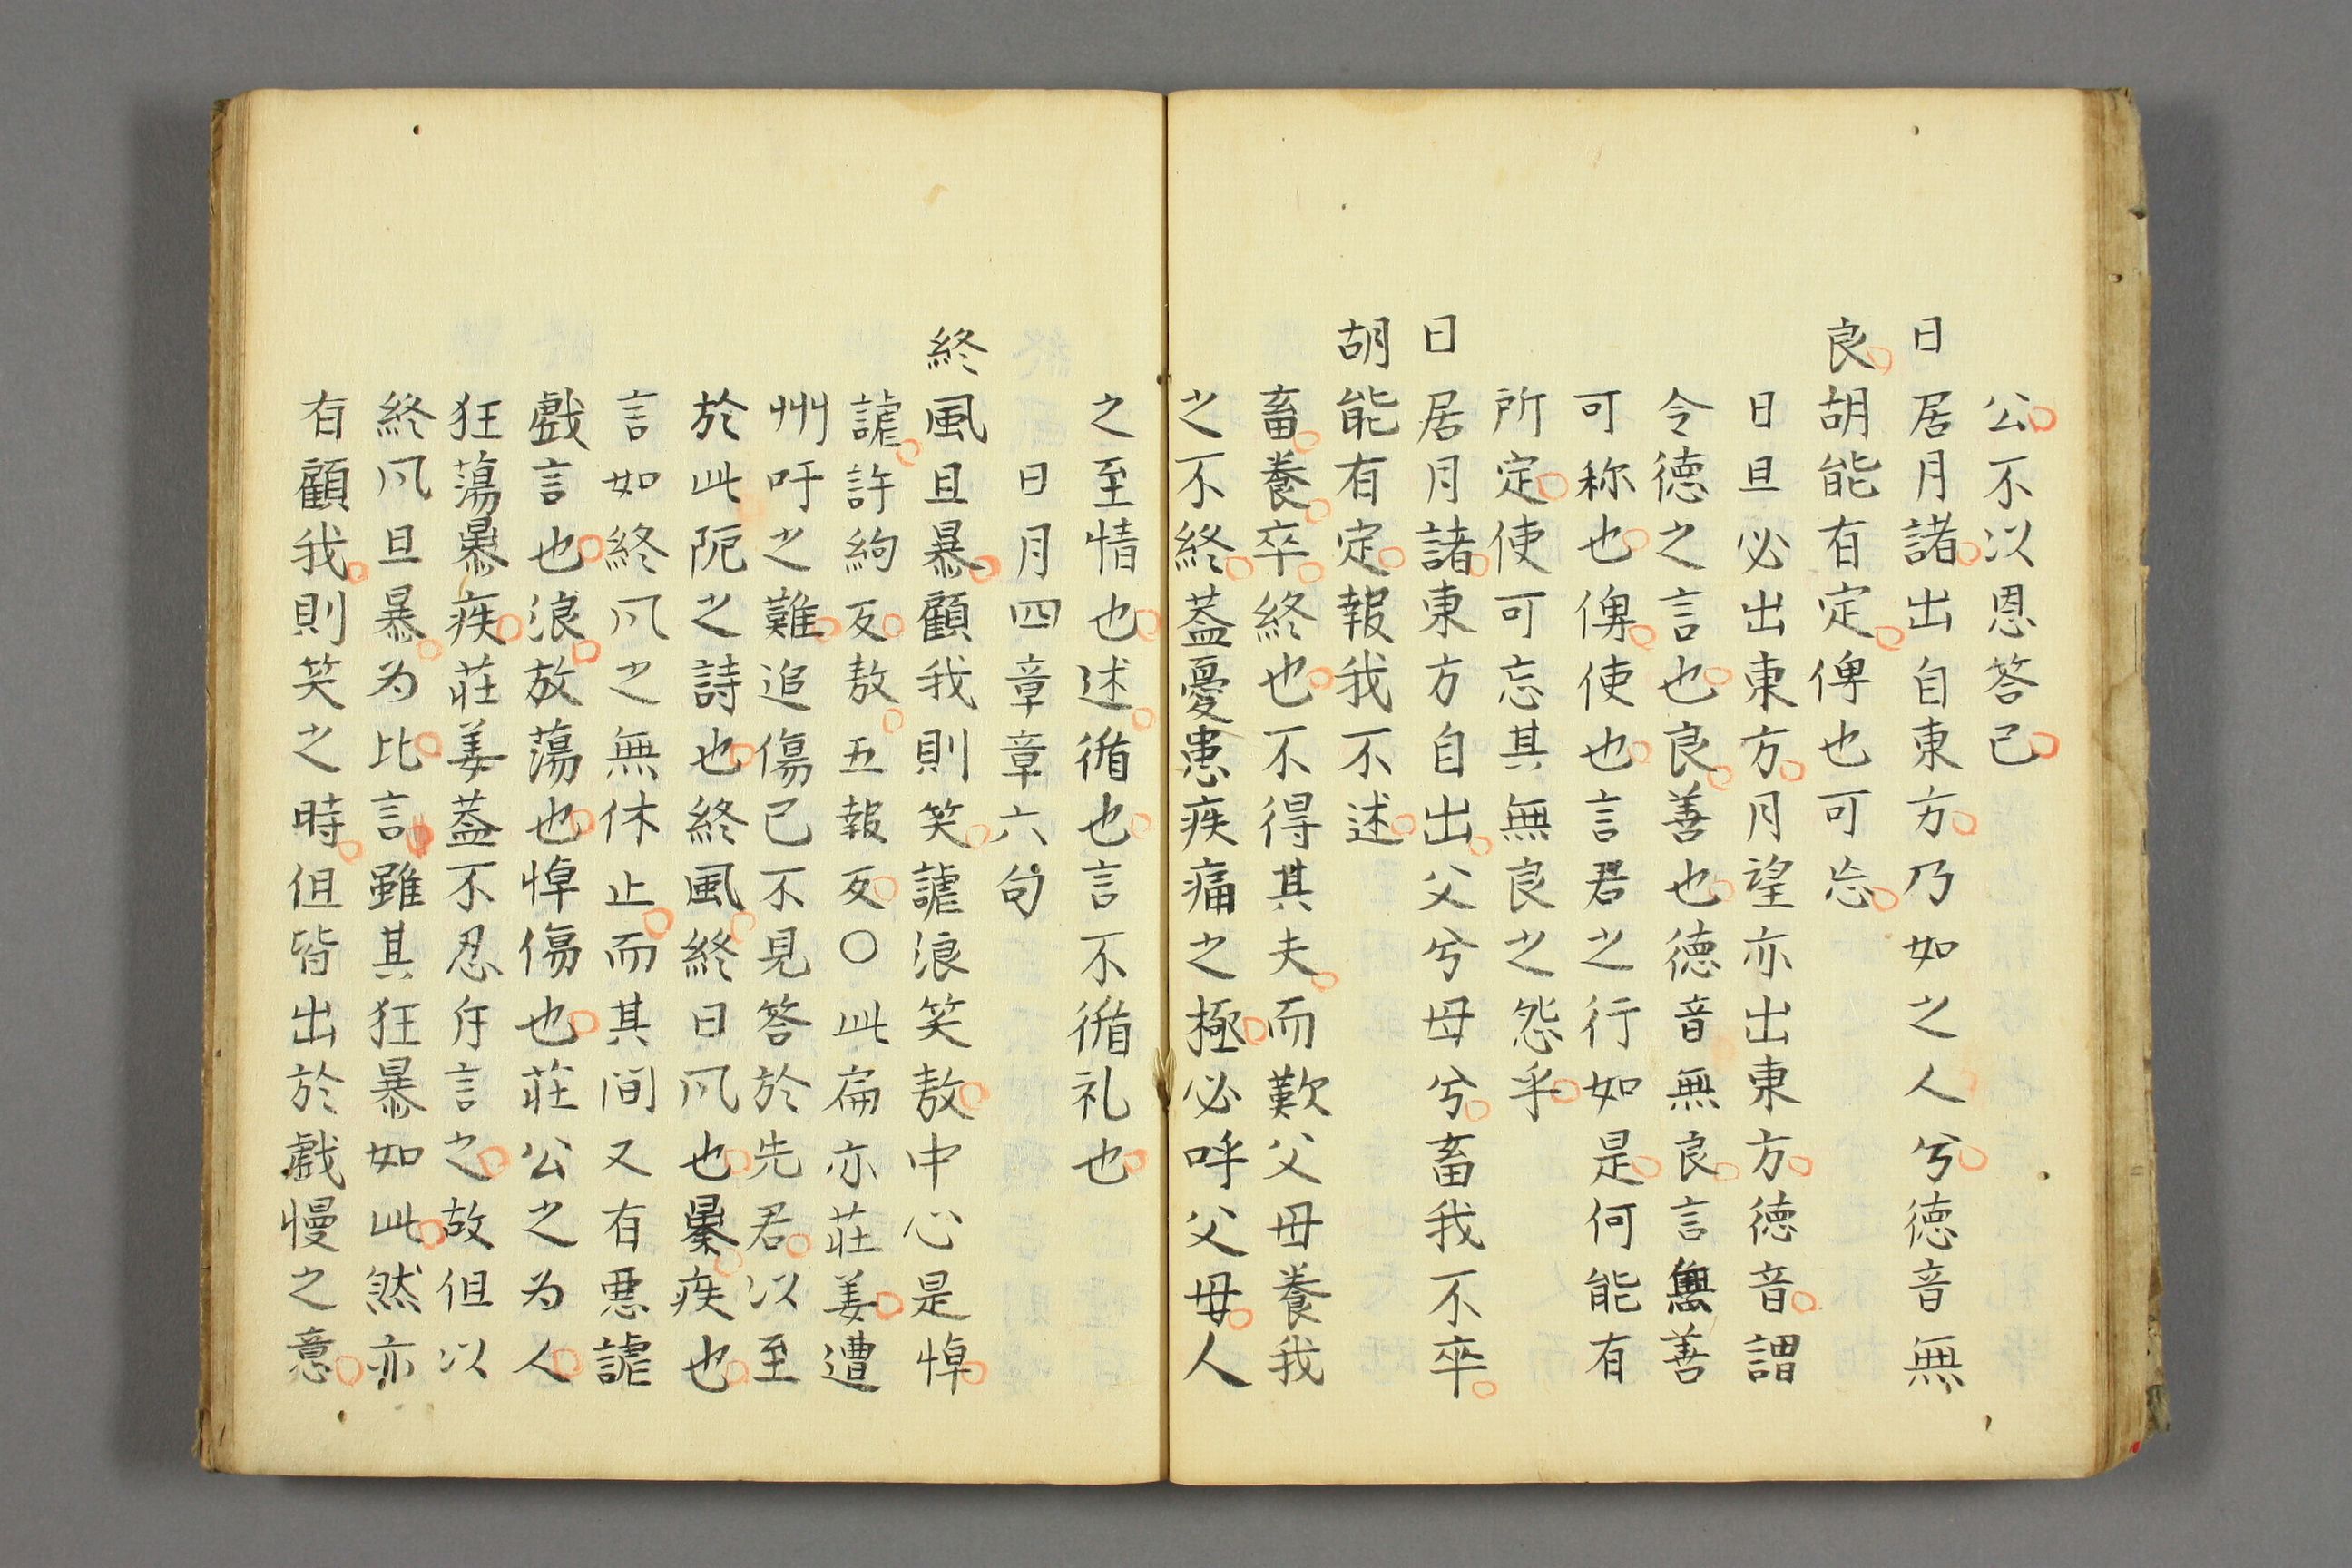 公不以恩答己
日居月諸出自東方乃如之人兮徳音無
良胡能有定俾也可忘
日旦必出東方月望亦出東方徳音謂
令徳之言也良善也徳音無良言無善
可称也俾使也言君之行如是何能有
所定使可忘其無良之怨乎
日居月諸東方自出父兮母兮畜我不卒
胡能有定報我不述
畜養卒終也不得其夫而歎父母養我
之不終蓋憂患疾痛之極必呼父母人
之至情也述循也言不循礼也
日月四章章六句
終風且暴顧我則笑謔浪笑敖中心是悼
謔許約反敖五報反○此扁亦莊姜遭
州吁之難追傷己不見答於先君以至
於此阨之詩也終風終日凨也暴疾也
言如終凨之無休止而其間又有悪謔
戲言也浪放蕩也悼傷也莊公之为人
狂蕩暴疾莊姜蓋不忍斥言之故但以
終凨且暴为比言雖其狂暴如此然亦
有顧我則笑之時但皆出於戯慢之意